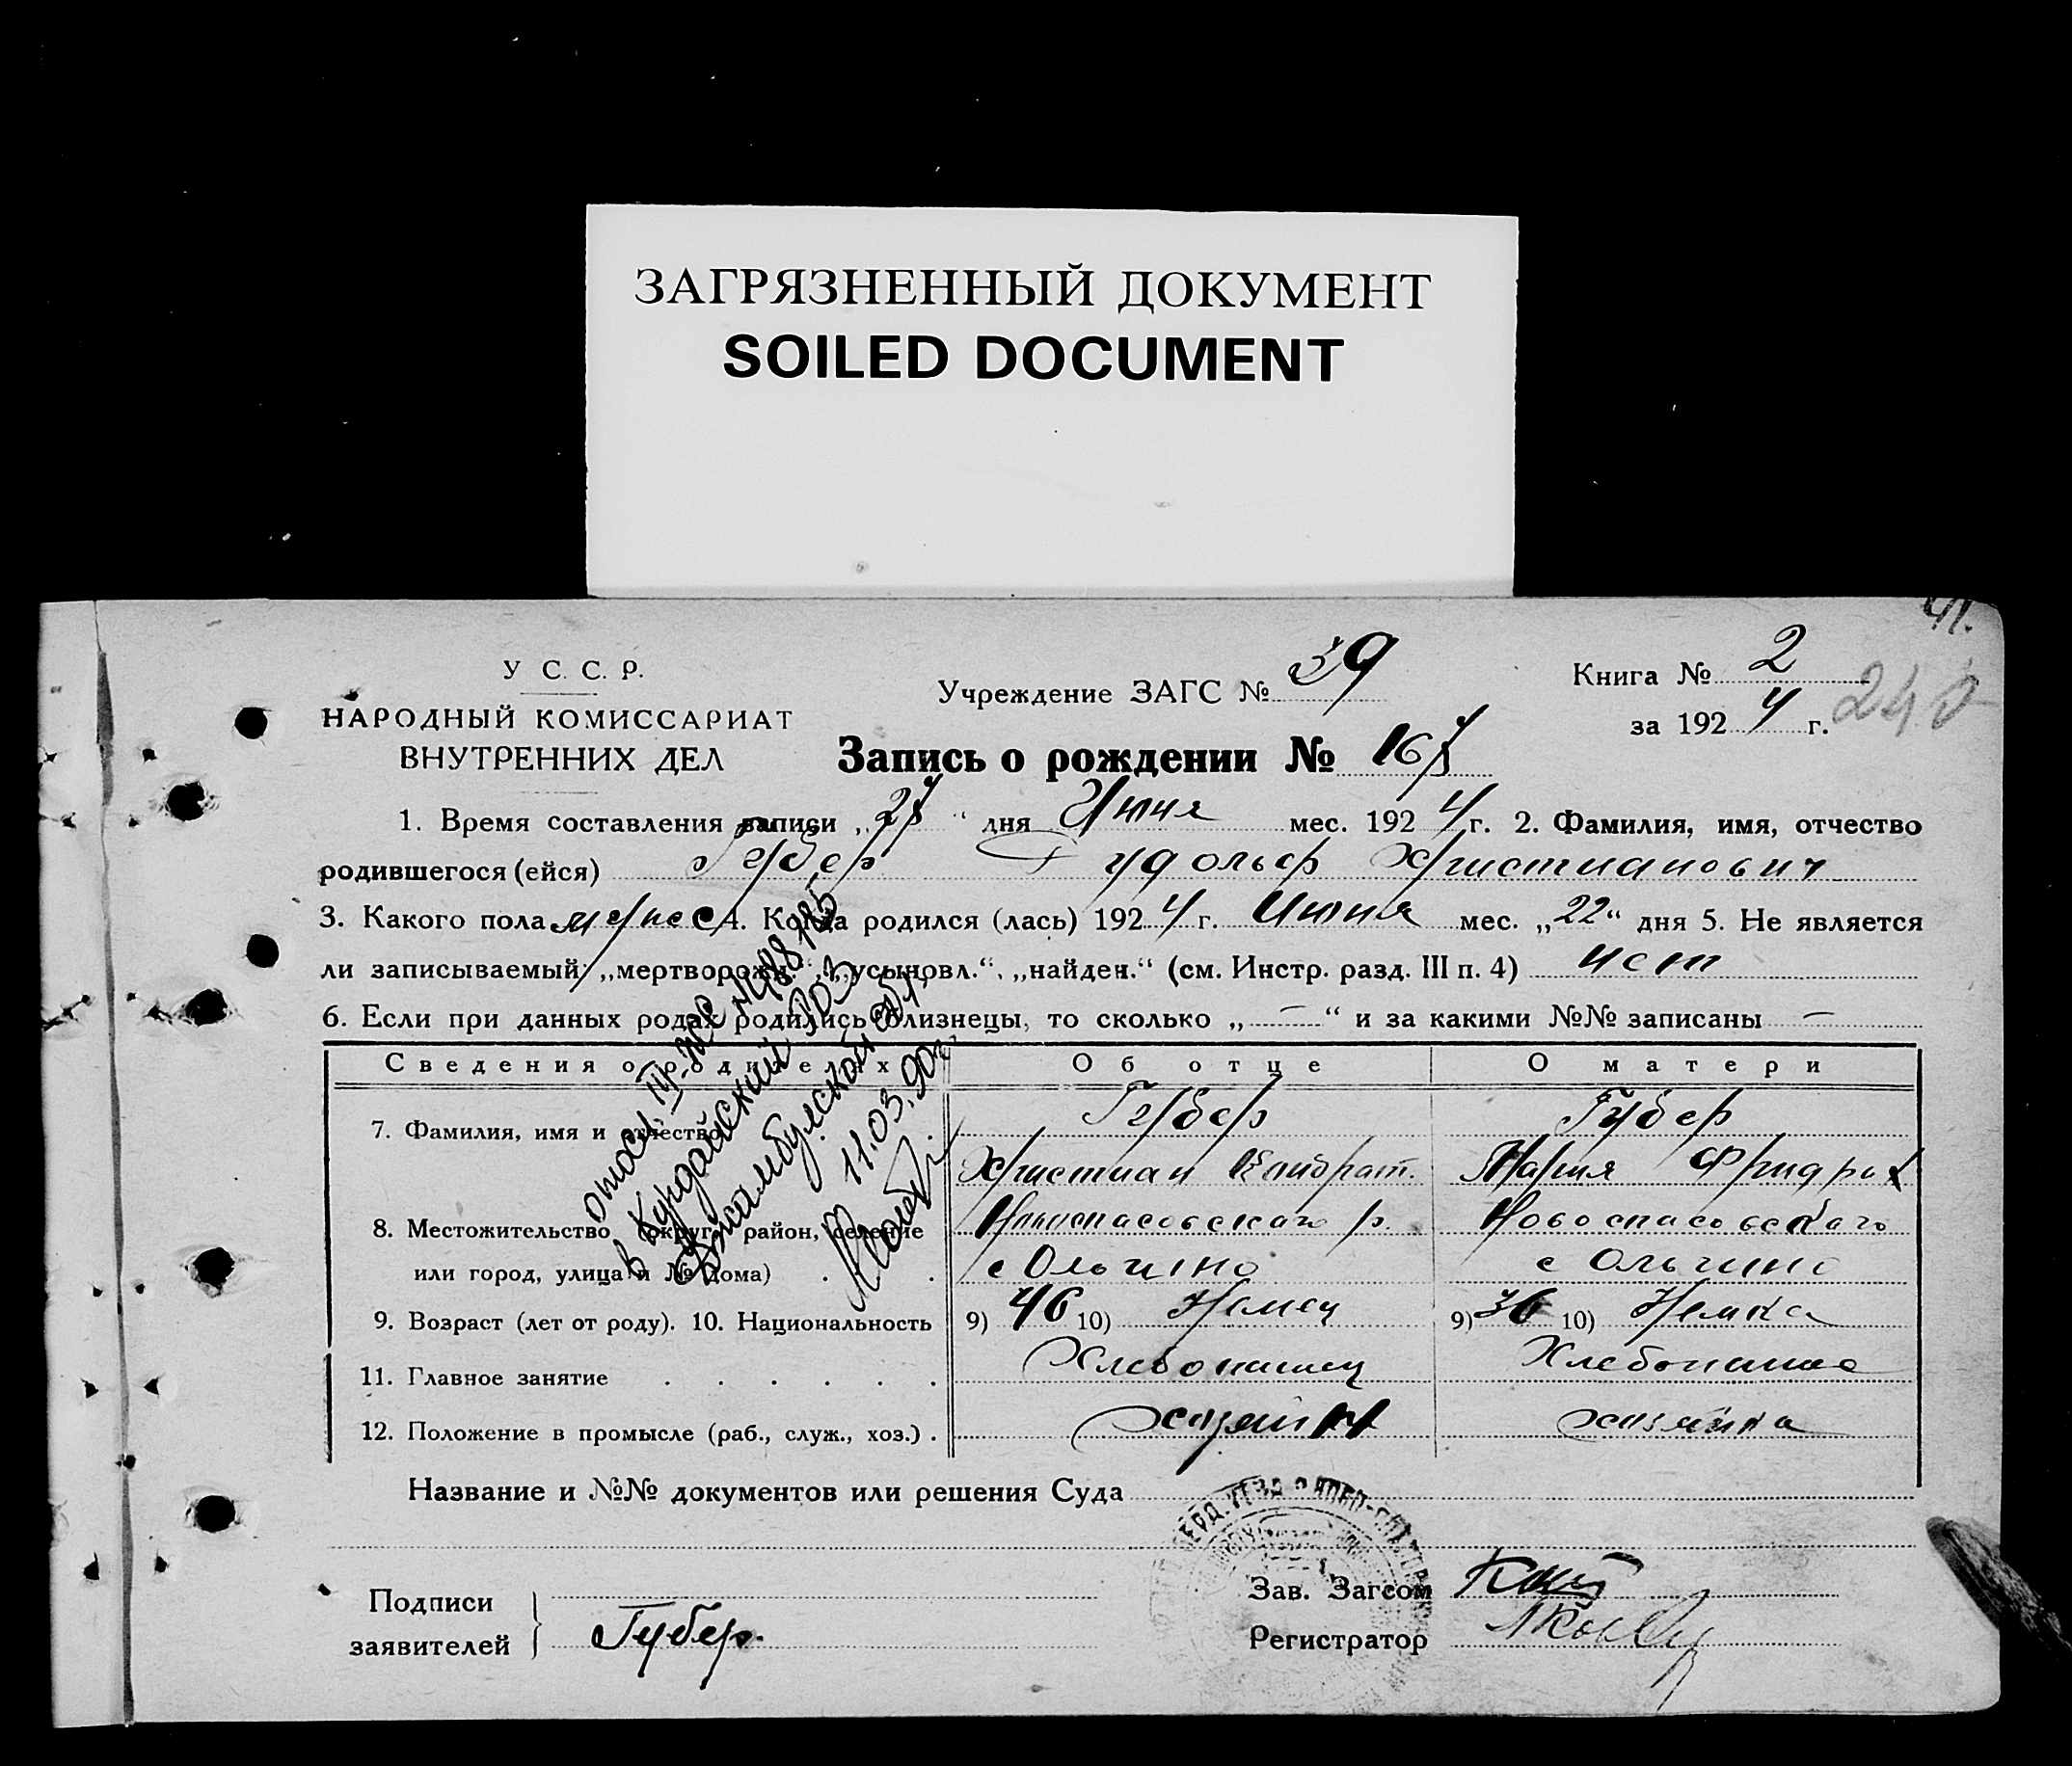 ЗАГРЯЗНЕННЫЙ ДОКУМЕНТ
SOILED DOCUMENT
У С. С. Р.
НАРОДНЫЙ КОМИССАРИАТ
ВНУТРЕННИХ ДЕЛ
Учреждение ЗАГС № 39
Книга № 2
за 192 4 г.
Запись о рождении № 167
1. Время составления записи „ 27 “ дня Июня мес. 192 4 г. 2. Фамилия, имя, отчество
родившегося (ейся) Губер Рудольф Христианович
3. Какого пола мужес 4. Когда родился (лась) 192 4 г. Июня мес. „ 22 “ дня 5. Не является
ли записываемый: „мертворожд.“, „усыновл.“, „найден.“ (см. Инстр. разд. III п. 4) нет
6. Если при данных родах родились близнецы, то сколько „ — “ и за какими №№ записаны —
Сведения о родителях Об отце О матери
7. Фамилия, имя и отчество Губер Губер
Христиан Кондрат. Мария Фридрих
8. Местожительство (округ, район, селение Новоспасовскаго р. Новоспасовскаго
или город, улица и № дома) с Ольгино с Ольгино
9. Возраст (лет от роду). 10. Национальность 9) 46 10) Немец 9) 36 10) Немка
11. Главное занятие Хлебопашец Хлебопаше
12. Положение в промысле (раб., служ., хоз.) Хозяин хозяйка
Название и №№ документов или решения Суда
Подписи
заявителей Губер.
Зав. Загсом
Регистратор
в Курдайский РОЗ
Джамбулской обл.
11.03.90г.